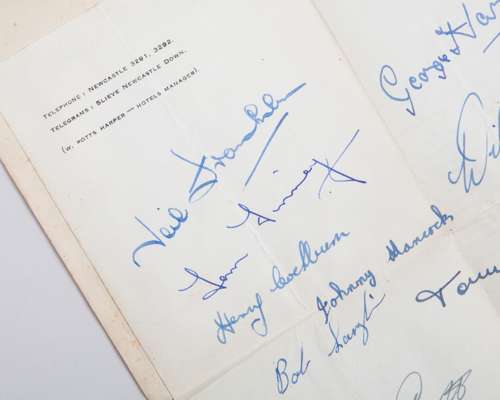 TELEPHONE: NEWCASTLE 3291, 3292.
TELEGRAMS: SLIEVE NEWCASTLE DOWN.
(W. POTTS HARPER — HOTELS MANAGER).
Neil Franklin
Tom Finney
Henry Cockburn
Johnny Hancocks
Bob Langt
George Har
Wil
Tom